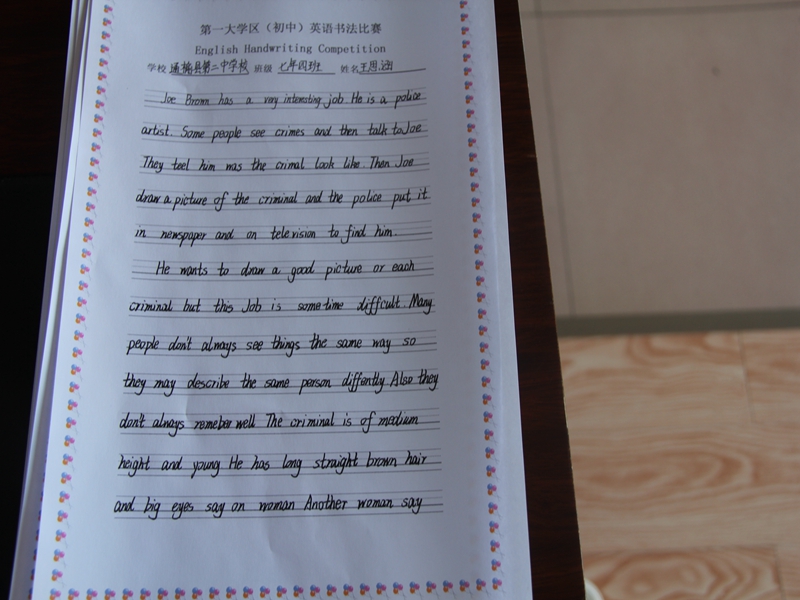 第一大学区（初中）英语书法比赛
English Handwriting Competition
学校 通榆县第二中学校 班级 七年四班 姓名 王思涵
Joe Brown has a very interesting job. He is a police
artist. Some people see crimes and then talk to Joe.
They teel him was the crimal look like. Then Joe
draw a picture of the criminal and the police put it
in newspaper and on television to find him.
He wants to draw a good picture or each
criminal but this Job is some time diffcult. Many
people don't always see things the same way so
they may describe the same person diffently. Also they
don't always remeber well The criminal is of medium
height and young He has long straight brown hair
and big eyes say on woman Another woman say